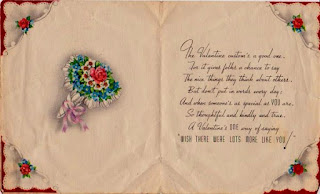 The Valentine custom's a good one,
For it gives folks a chance to say
The nice things they think about others
But don't put in words every day;
And when someone's as special as YOU are,
So thoughtful and kindly and true,
A Valentine's ONE way of saying
"WISH THERE WERE LOTS MORE LIKE YOU!"